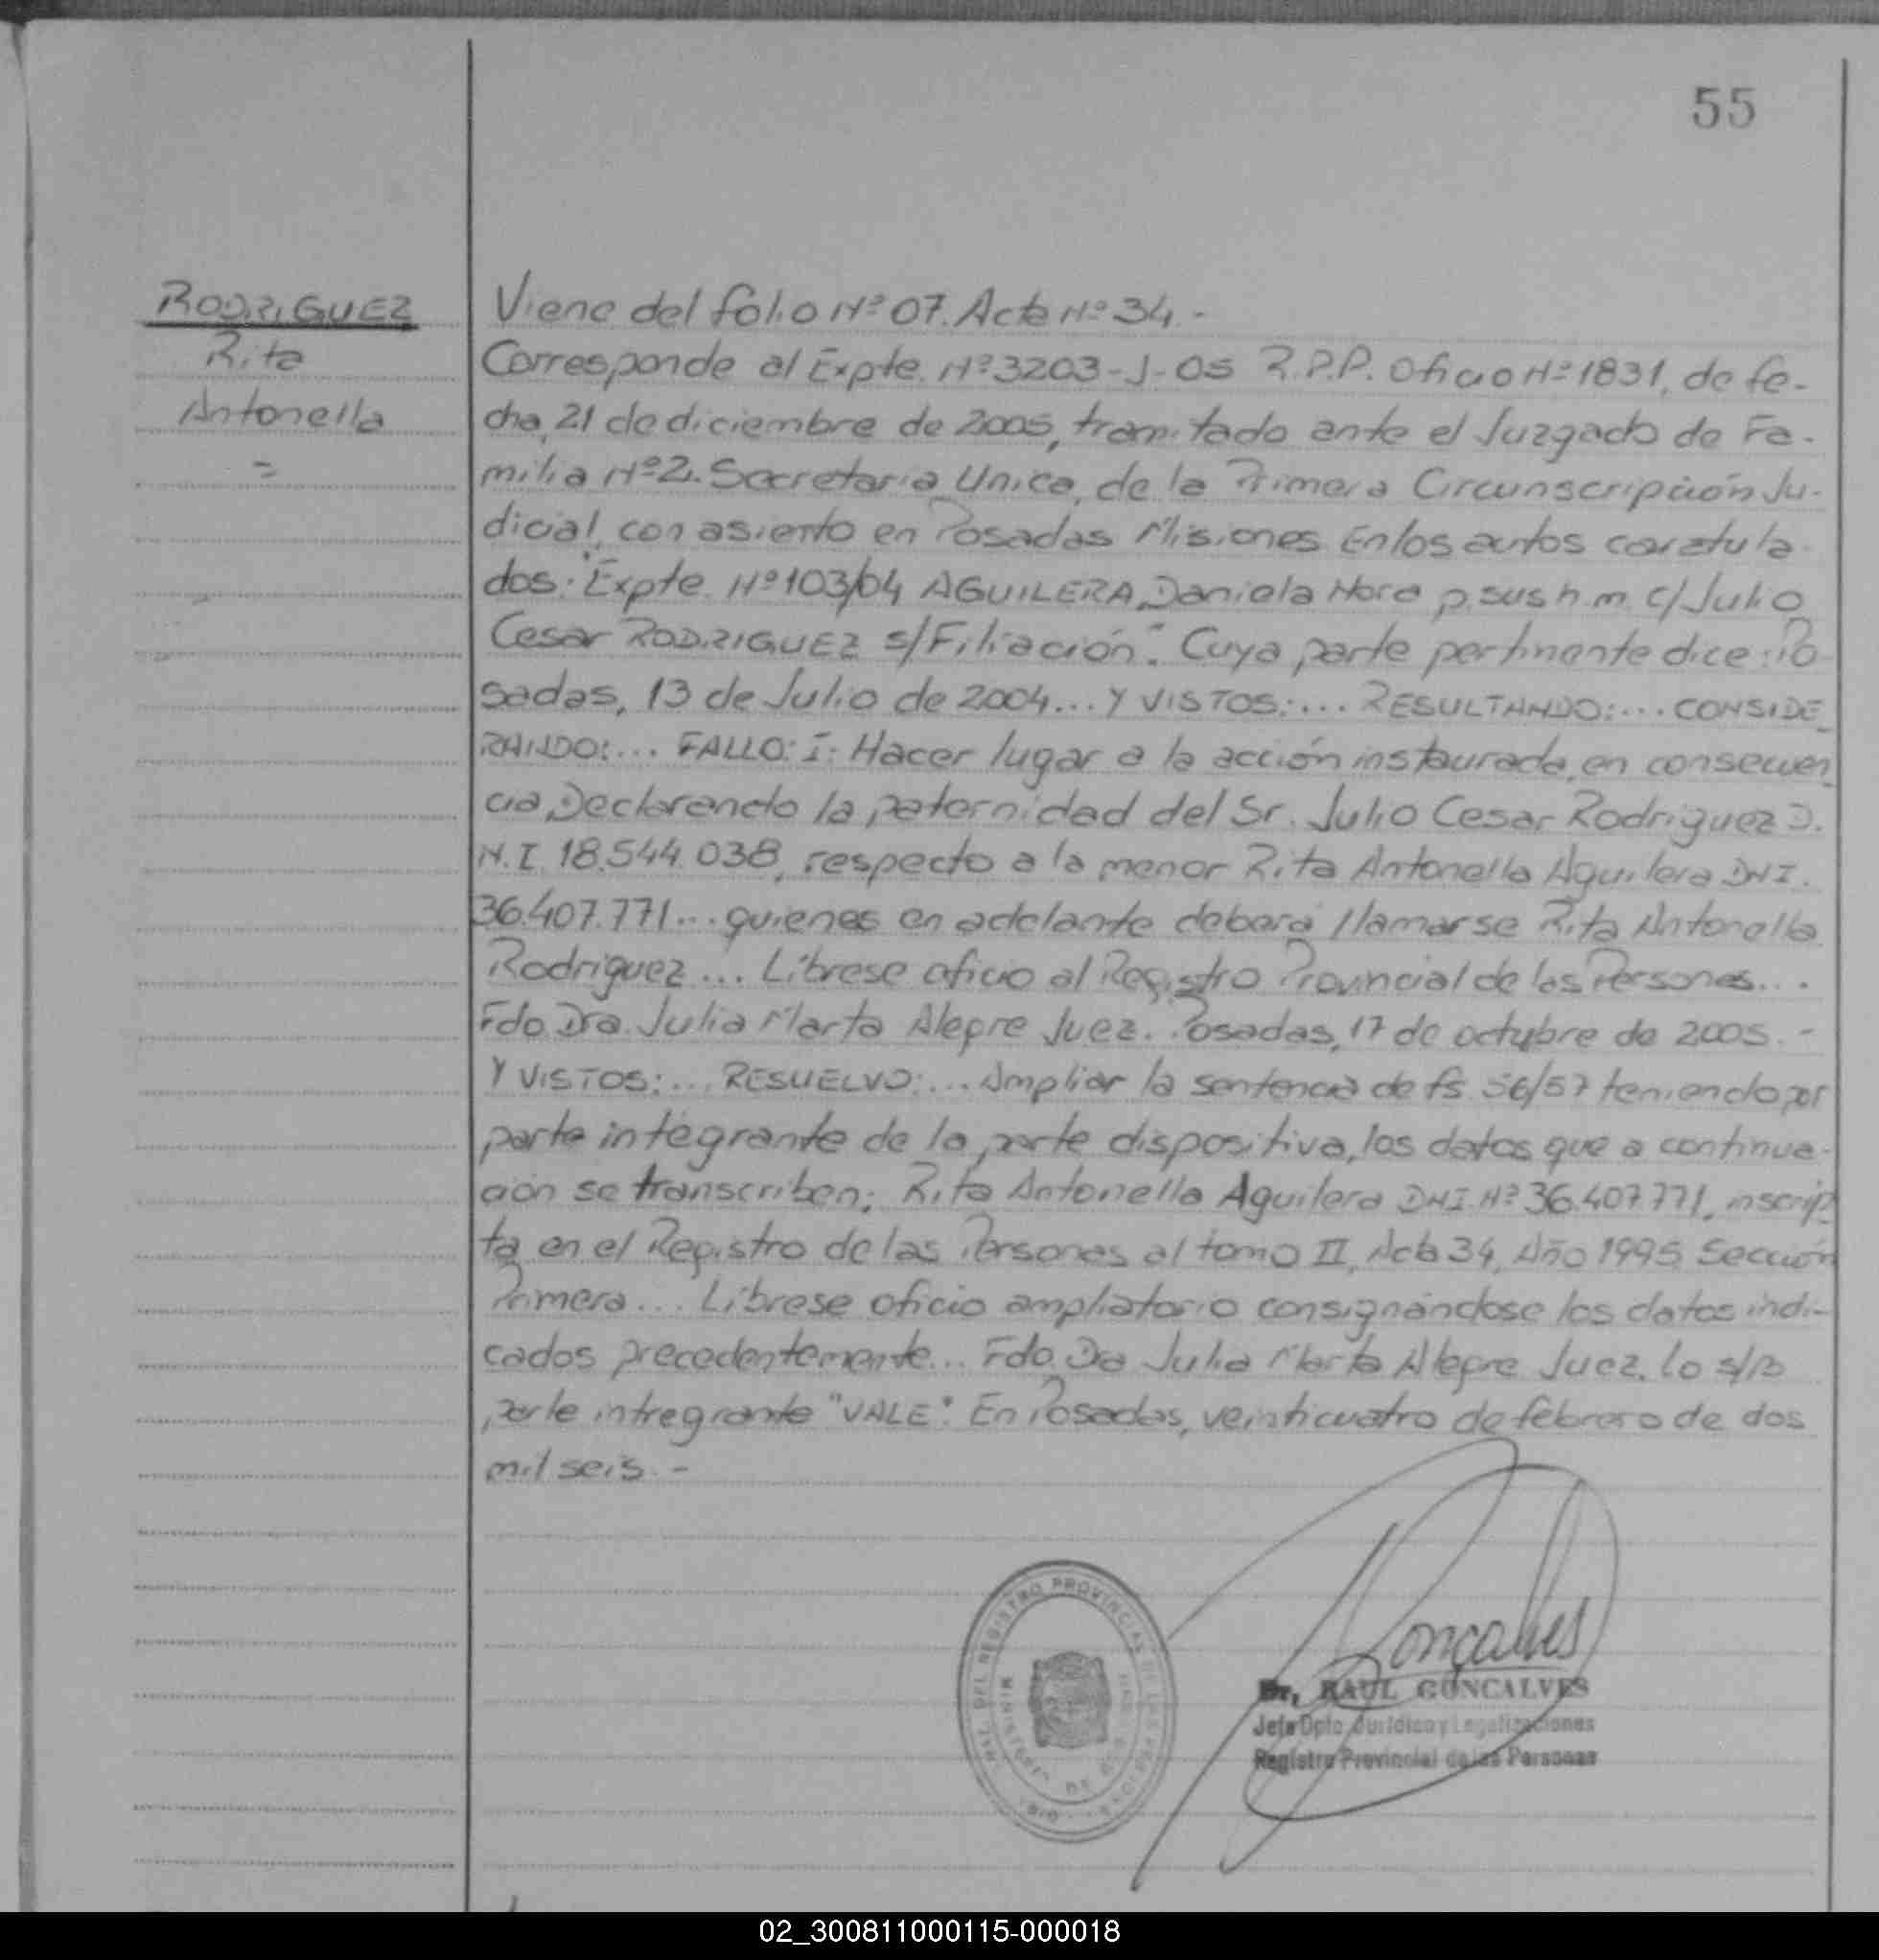 55
RODRIGUEZ
Rita
Antonella
=
Viene del folio Nº 07. Acta Nº 34.-
Corresponde al Expte. Nº 3203-J-05 R.P.P. Oficio Nº 1831, de fe-
cha, 21 de diciembre de 2005, tramitado ante el Juzgado de Fa-
milia Nº 2. Secretaria Unica, de la Primera Circunscripción Ju-
dicial, con asiento en Posadas Misiones En los autos caratula-
dos: "Expte. Nº 103/04 AGUILERA, Daniela Nora p. sus h.m. c/ Julio
Cesar RODRIGUEZ s/Filiación". Cuya parte pertinente dice: "Po-
sadas, 13 de Julio de 2004... Y VISTOS:... RESULTANDO:... CONSIDE_
RANDO:... FALLO: I: Hacer lugar a la acción instaurada, en consecuen_
cia, Declarando la paternidad del Sr. Julio Cesar Rodriguez D.
N.I. 18.544.038, respecto a la menor Rita Antonella Aguilera DNI.
36.407.771... quienes en adelante deberá llamarse Rita Antonella
Rodriguez... Líbrese oficio al Registro Provincial de las Personas...
Fdo. Dra. Julia Marta Alegre Juez. Posadas, 17 de octubre de 2005.-
Y VISTOS:... RESUELVO:... Ampliar la sentencia de fs 56/57 teniendo por
parte integrante de la parte dispositiva, los datos que a continua-
ción se transcriben; Rita Antonella Aguilera DNI. Nº 36.407.771, inscrip_
ta en el Registro de las Personas al tomo II, Acta 34, Año 1995, Sección
Primera... Líbrese oficio ampliatorio consignándose los datos indi-
cados precedentemente... Fdo. Dra Julia Marta Alegre Juez. Lo s/b
parte intregrante "VALE". En Posadas, veinticuatro de febrero de dos
mil seis.-
DEL REGISTRO PROVINCIAL DE LAS PERSONAS
Goncalves
Dr. RAUL GONCALVES
Jefe Dpto. Jurídico y Legalizaciones
Registro Provincial de las Personas
02_300811000115-000018